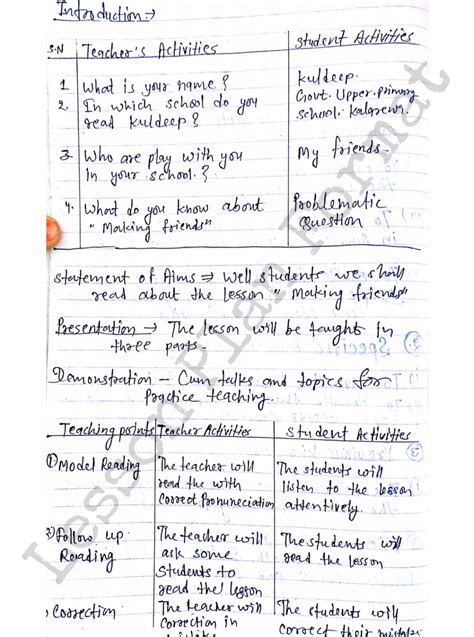 Introduction →
S.N Teacher's Activities Student Activities
1. What is your name? Kuldeep.
2. In which school do you read Kuldeep? Govt. Upper primary school. Kalgrewr.
3. Who are play with you in your school.? My friends.
4. What do you know about "Making friends" Problematic Question
Statement of Aims ⇒ Well students we shall
read about the lesson "Making friends"
Presentation → The lesson will be taught in
three parts.
Demonstration - Cum talks and topics for
Practice teaching.
Teaching points Teacher Activities Student Activities
① Model Reading The teacher will read the with Correct Pronuneciation The students will listen to the lesson attentively.
2) Follow up Reading The teacher will ask some Students to read the lesson The students will read the lesson
Correction The teacher will correction in The students will correct their mistakes
Lesson Plan Format